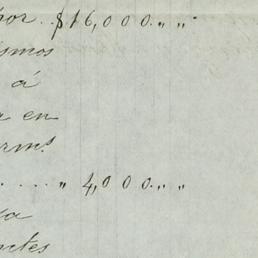 por.. $16,000.„ „
ismos
á
a en
erms.
.... „ 4,000.„ „
sa
ntes